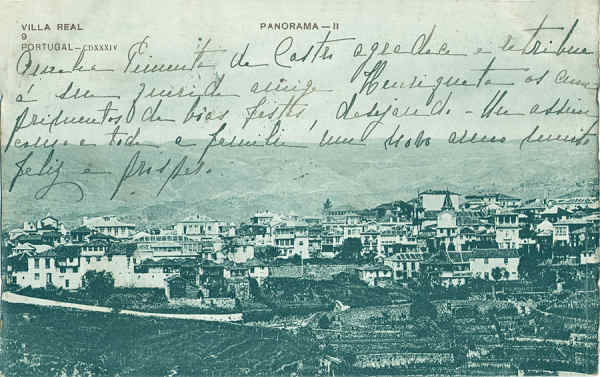 VILLA REAL
PANORAMA — II
9
PORTUGAL — CDXXXIV
Pimenta de Castro agradece e retribue
á sua querida amiga Henriqueta os cum-
primentos de boas festas, desejando-lhe assim
como a toda a familia um novo anno muito
feliz e prospero.